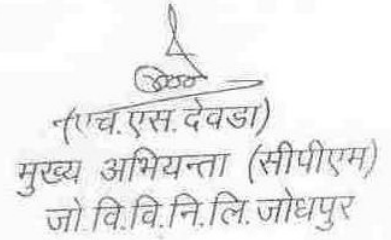 (एच.एस.देवडा)
मुख्य अभियन्ता (सीपीएम)
जो.वि.वि.नि.लि.जोधपुर